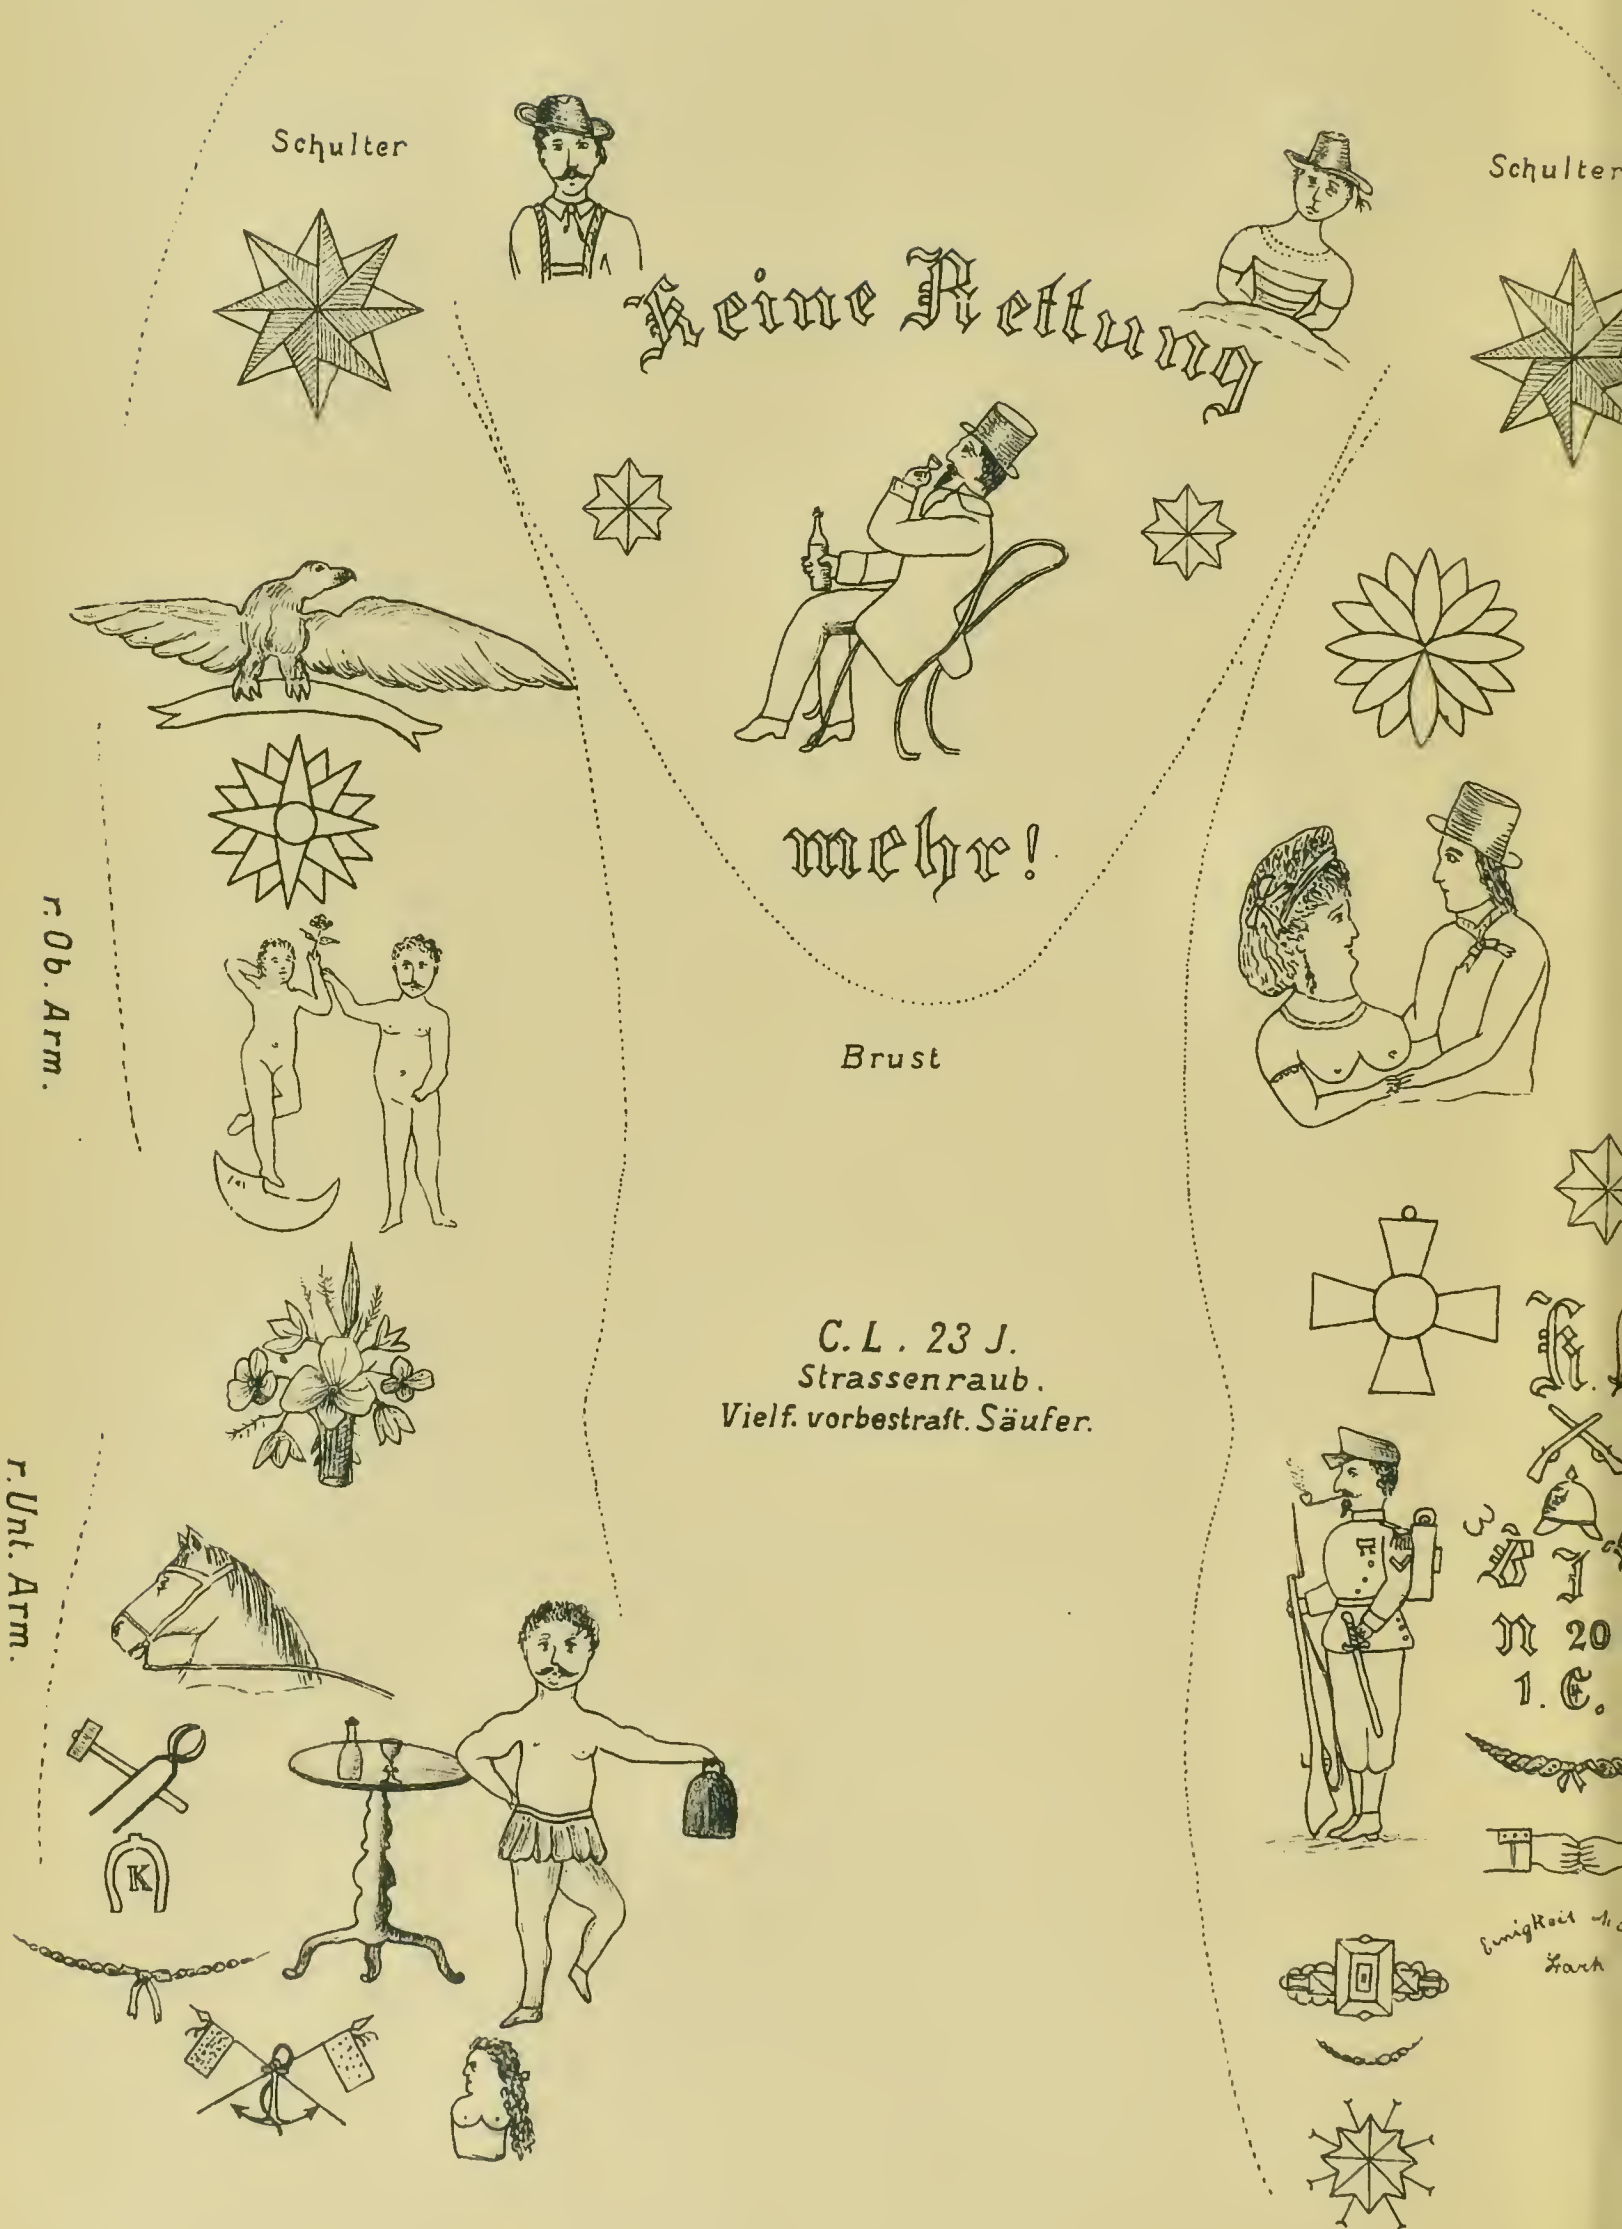 Schulter
Schulter
Keine Rettung
mehr!
r. Ob. Arm.
Brust
C. L. 23 J.
Strassenraub.
Vielf. vorbestraft. Säufer.
K.
r. Unt. Arm.
B J
N 20
1. C.
K
Einigkeit